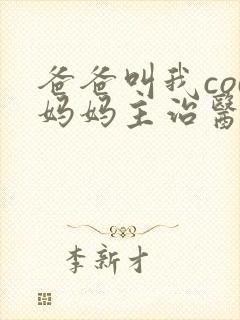 爸爸叫我co
妈妈主治醫
李新才